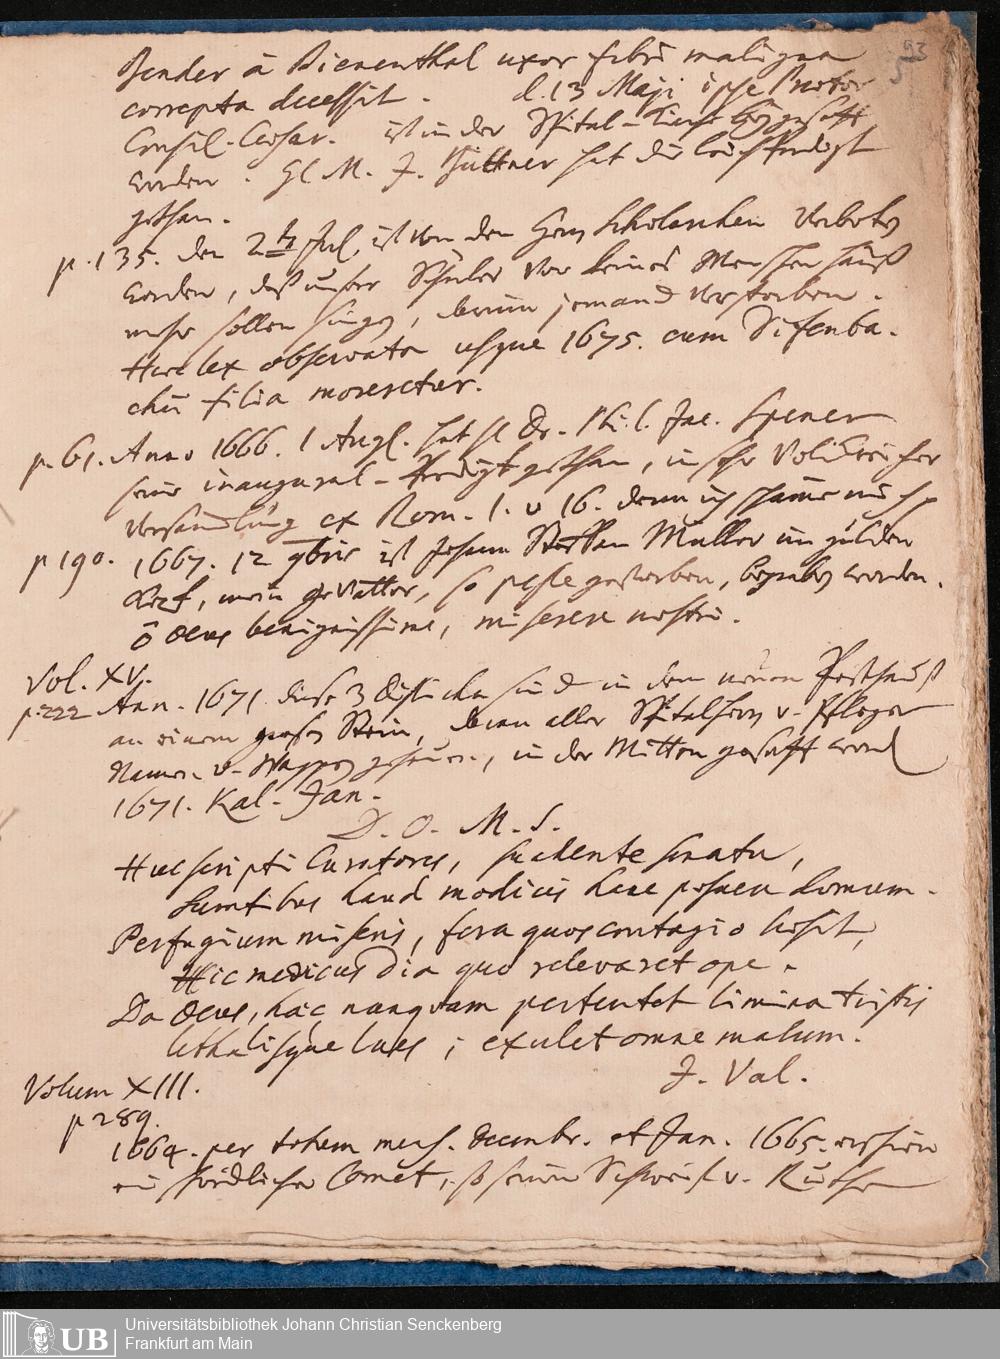 93
5
Bender à Bienenthal uxor febri maligna
correpta decessit. d. 13 Maji ipse Praetor
Consil. Caesar. ist in der Spital-Kirch beygesetzt
worden. H M. J. Büttner hat die leichpredigt
gethan.
p. 135. den 2 Jul. ist von den Herrn Scholarchen verboten
worden, daß unser Schüler vor keines Menschen hauß
mehr sollen singen, darin jemand verstorben.
Haec lex observata usque 1675. cum Difenba-
chii filia moreretur.
p. 61. Anno 1666. 1 Aug. hat H Dr. Phil. Jac. Spener
seine inaugural-Predigt gethan, in sehr Volckreicher
Versamlung ex Rom. 1. v 16. denn ich schäme mich
p 190. 1667. 12 9bris ist Johann Steffan Müller im gülden
, mein gevatter, so peste gestorben, begraben worden.
ô Deus benignissime, miserere nostri.
Vol. XV.
p. 222 Ann. 1671 diese 3 disticha sind in dem neuen Pesthauß
an einem großen Stein, daran aller Spitalherrn v. Pfleger
Namen v. Wappen gehauen, in der Mitten gesetzt word
1671. Kal. Jan.
D. O. M. S.
Huc scripti Curatores, suadente senatu,
Sumtibus haud modicis hanc posuere domum.
Perfugium miseris, fera quos contagio laesit,
Hic medicus dia quo relevaret ope.
Da Deus, haec nunquam pertentet limina tristis
lethalisque lues; exulet omne malum.
J. Val.
Volum XIII.
p 289.
1664. per totum mens. Decembr. et Jan. 1665. erschien
ein schrödlicher Comet, so seinen Schweif v. Ruthe
UB
Universitätsbibliothek Johann Christian Senckenberg
Frankfurt am Main